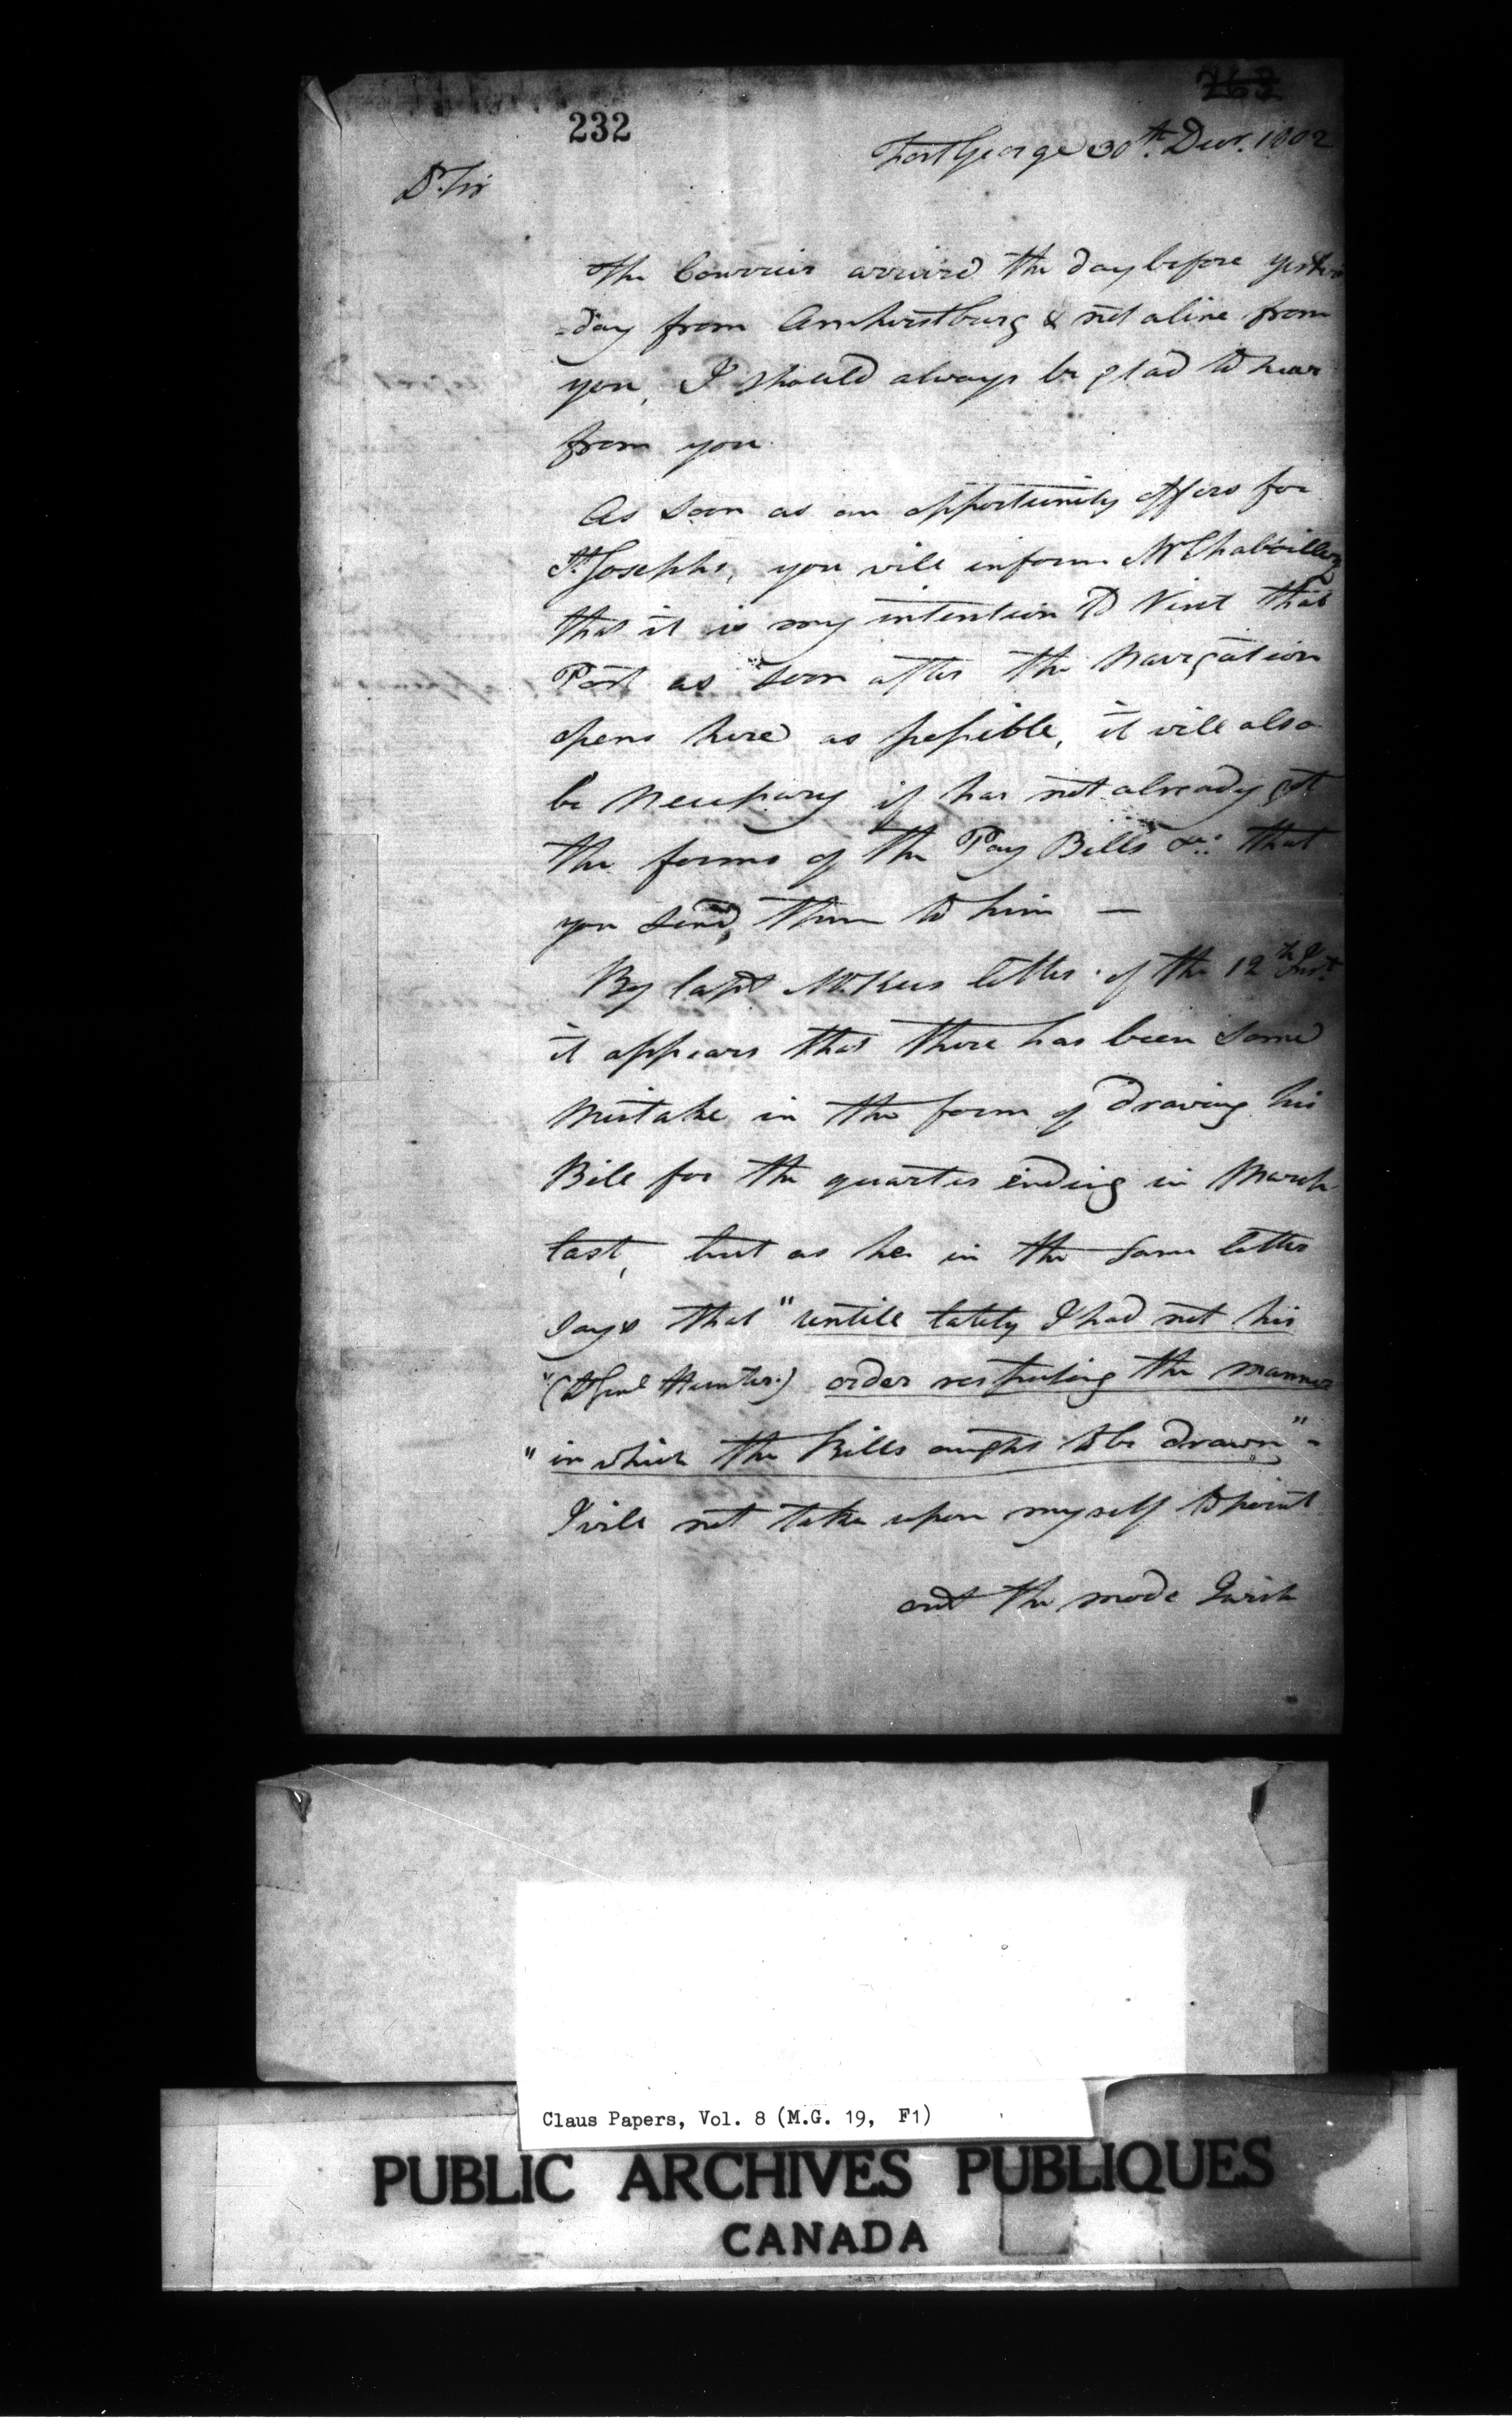 263
232
Fort George 30th. Decr. 1802
Dr. Sir
The Courier arrived the day before yester
=day from Amherstburg & not a line from
you, I should always be glad to hear
from you
As soon as an opportunity offers for
St. Josephs, you will inform Mr Chaboillez
that it is my intention to Visit that
Post as soon after the Navigation
opens here as possible, it will also
be Necessary if has not already got
the forms of the Pay Bills &c: that
you send them to him —
By Capt McKees letter of the 12th Inst.
it appears that there has been some
Mistake in the form of drawing his
Bill for the quarter ending in March
last, but as he in the same letter
says that "untill lately I had not his
"(Lt Genl Hunter) order respecting the manner
"in which the Bills ought to be drawn"-
I will not take upon myself to point
out the mode I wish
Claus Papers, Vol. 8 (M.G. 19, F1)
PUBLIC ARCHIVES PUBLIQUES
CANADA